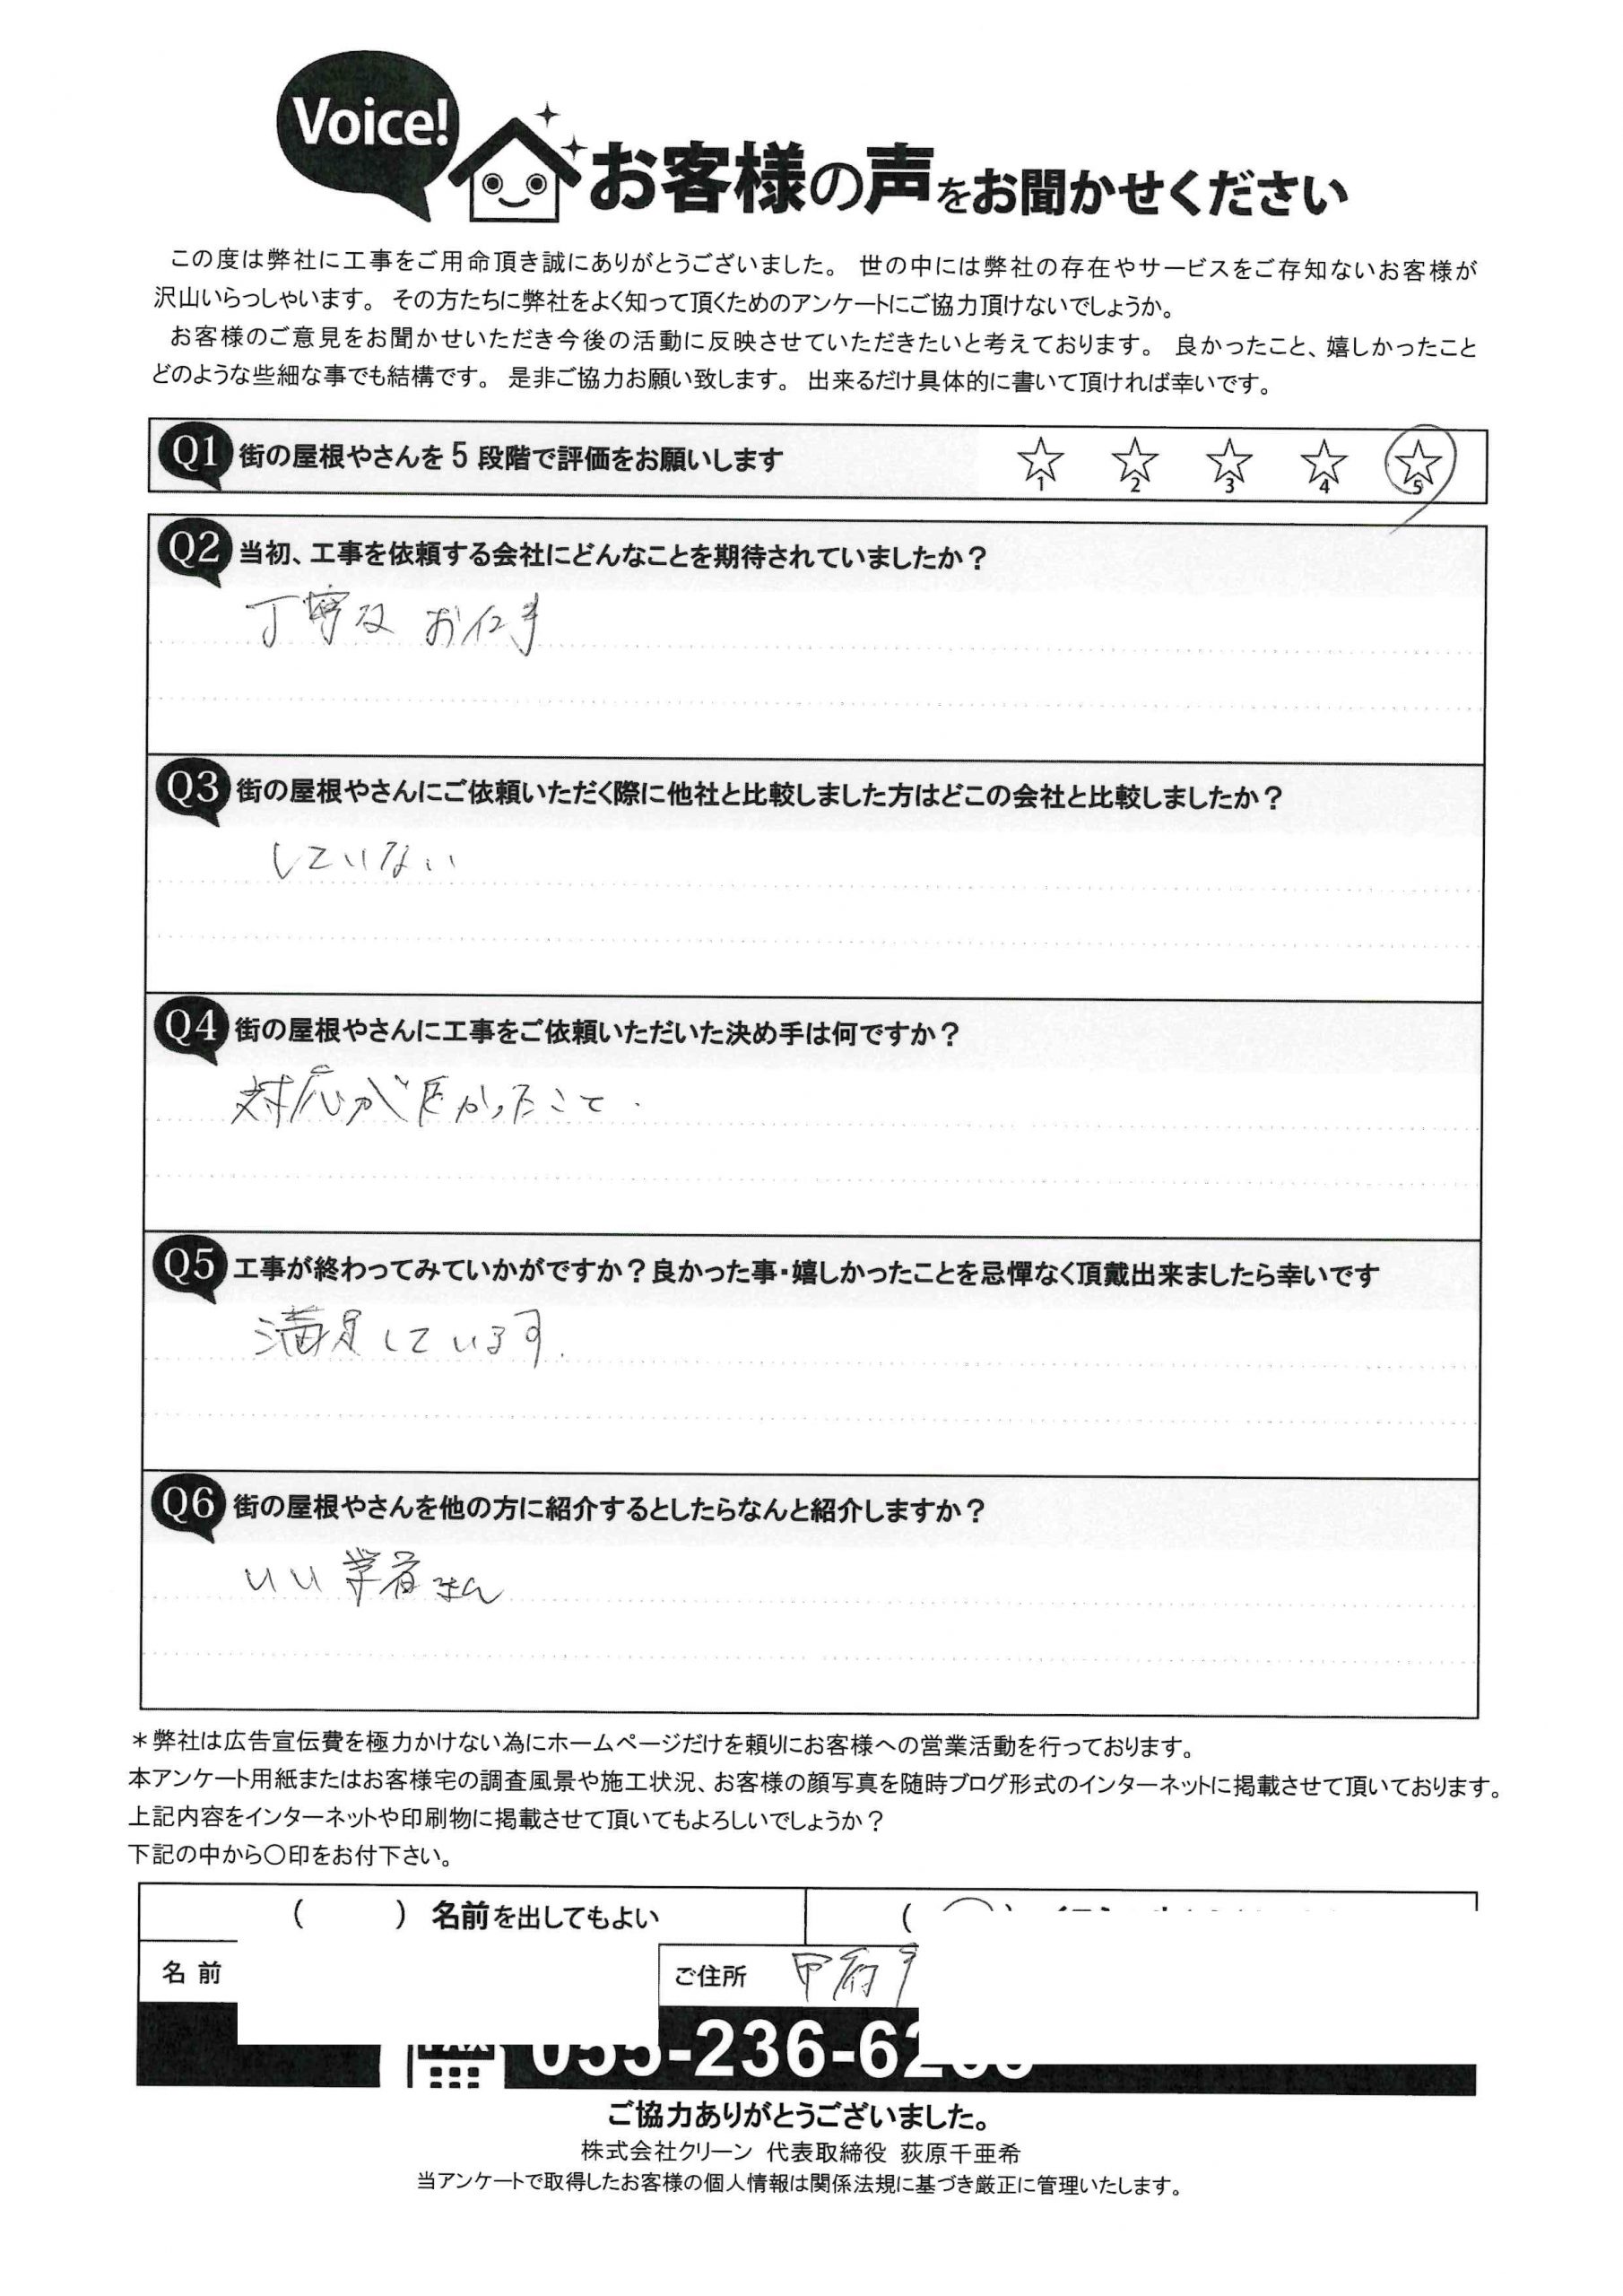 Voice!
お客様の声をお聞かせください
この度は弊社に工事をご用命頂き誠にありがとうございました。 世の中には弊社の存在やサービスをご存知ないお客様が
沢山いらっしゃいます。 その方たちに弊社をよく知って頂くためのアンケートにご協力頂けないでしょうか。
お客様のご意見をお聞かせいただき今後の活動に反映させていただきたいと考えております。 良かったこと、嬉しかったこと
どのような些細な事でも結構です。 是非ご協力お願い致します。 出来るだけ具体的に書いて頂ければ幸いです。
Q1 街の屋根やさんを5段階で評価をお願いします ☆1 ☆2 ☆3 ☆4 ☆5
Q2 当初、工事を依頼する会社にどんなことを期待されていましたか？
丁寧な お仕事
Q3 街の屋根やさんにご依頼いただく際に他社と比較しました方はどこの会社と比較しましたか？
していない
Q4 街の屋根やさんに工事をご依頼いただいた決め手は何ですか？
対応が良かったこと.
Q5 工事が終わってみていかがですか？良かった事・嬉しかったことを忌憚なく頂戴出来ましたら幸いです
満足しています.
Q6 街の屋根やさんを他の方に紹介するとしたらなんと紹介しますか？
いい業者さん
＊弊社は広告宣伝費を極力かけない為にホームページだけを頼りにお客様への営業活動を行っております。
本アンケート用紙またはお客様宅の調査風景や施工状況、お客様の顔写真を随時ブログ形式のインターネットに掲載させて頂いております。
上記内容をインターネットや印刷物に掲載させて頂いてもよろしいでしょうか？
下記の中から〇印をお付下さい。
（　　　）名前を出してもよい
名前
ご住所 甲府
055-236-6
ご協力ありがとうございました。
株式会社クリーン 代表取締役 荻原千亜希
当アンケートで取得したお客様の個人情報は関係法規に基づき厳正に管理いたします。